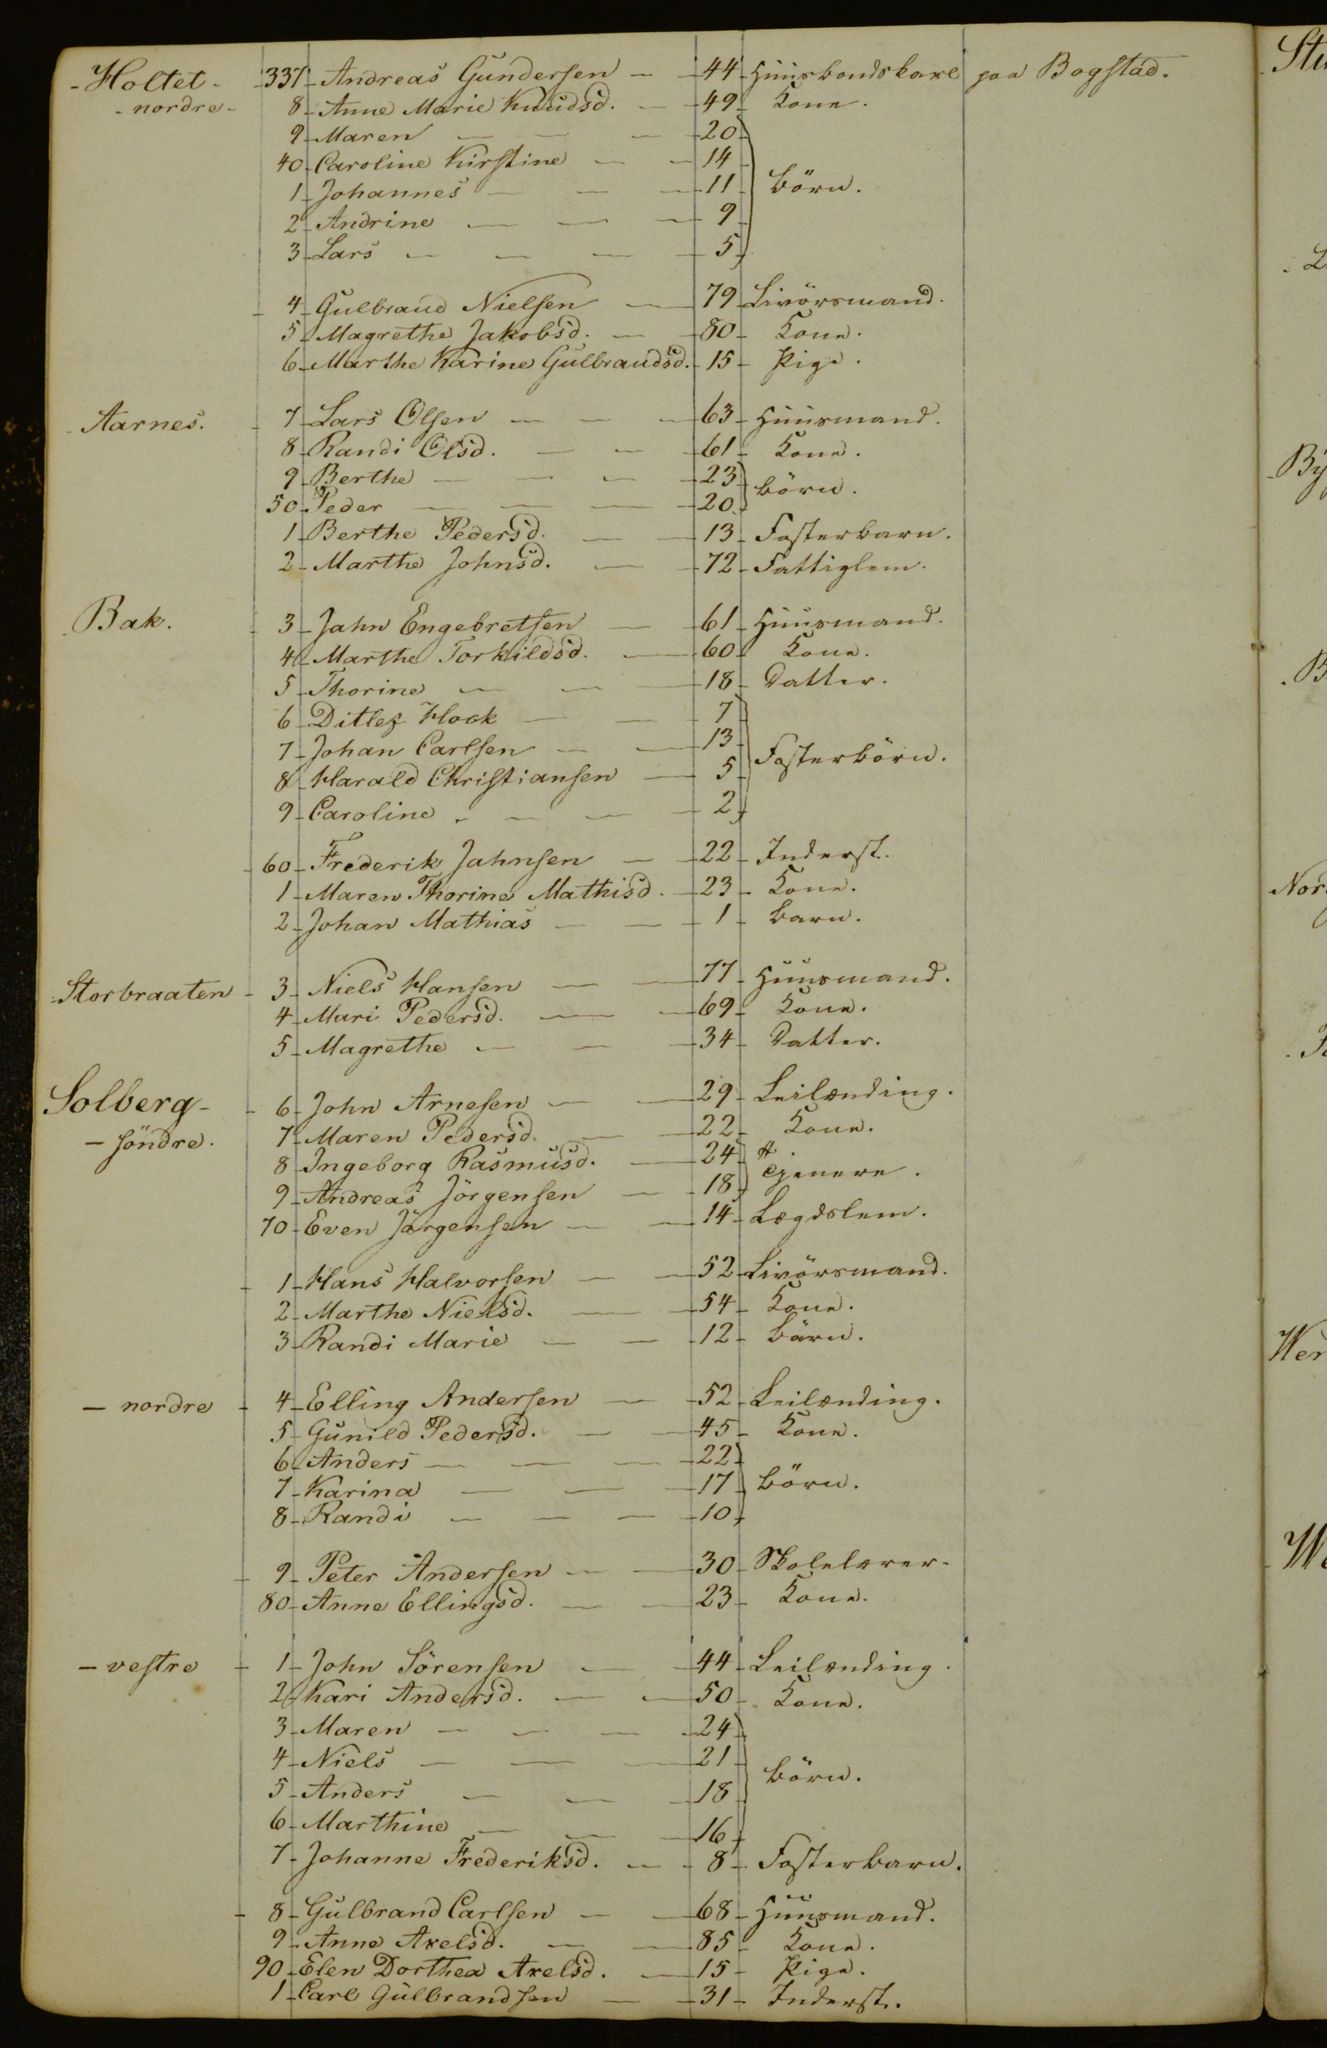 Holtet 337 Andreas Gundersen 44 Huusbondskarl paa Bogstad.
nordre 8 Anne Marie Knudsd. 49 Kone.
9 Maren 20
40 Caroline Kirstine 14
1 Johannes 11 Börn.
2 Andrine 9
3 Lars 5
4 Gulbrand Nielsen 79 Livörsmand.
5 Magrethe Jakobsd. 80 Kone.
6 Marthe Karine Gulbrandsd. 15 Pige.
Aarnes. 7 Lars Olsen 63 Huusmand.
8 Randi Olsd. 61 Kone.
9 Berthe 23 Börn.
50 Peder 20
1 Berthe Pedersd. 13 Fosterbarn.
2 Marthe Johnsd. 72 Fattiglem.
Bak. 3 Jahn Engebretsen 61 Huusmand.
4 Marthe Torkildsd. 60 Kone.
5 Thorine 18 Datter.
6 Ditlef Hook 7
7 Johan Carlsen 13 Fosterbörn.
8 Harald Christiansen 5
9 Caroline 2
60 Frederik Jahnsen 22 Inderst.
1 Maren Thorine Mathisd. 23 Kone.
2 Johan Mathias 1 Barn.
Storbraaten 3 Niels Hansen 77 Huusmand.
4 Muri Pedersd. 69 Kone.
5 Magrethe 34 Datter.
Solberg 6 John Arnesen 29 Leilænding.
söndre. 7 Maren Pedersd. 22 Kone.
8 Ingeborg Rasmusd. 24 Tjenere.
9 Andreas Jörgensen 18
70 Even Jörgensen 14 Lægdslem.
1 Hans Halvorsen 52 Livörsmand.
2 Marthe Nielsd. 54 Kone.
3 Randi Marie 12 Barn.
nordre 4 Elling Andersen 52 Leilænding.
5 Gunild Pedersd. 45 Kone.
6 Anders 22
7 Karina 17 Börn.
8 Randi 10
9 Peter Andersen 30 Skolelærer.
80 Anne Ellingsd. 23 Kone.
vestre 1 John Sörensen 44 Leilænding.
2 Kari Andersd. 50 Kone.
3 Maren 24
4 Niels 21 Börn.
5 Anders 18
6 Marthine 16
7 Johanne Frederiksd. 8 Fosterbarn.
8 Gulbrand Carlsen 68 Huusmand.
9 Anne Axelsd. 85 Kone.
90 Elen Dorthea Axelsd. 15 Pige.
1 Carl Gulbrandsen 31 Inderst.